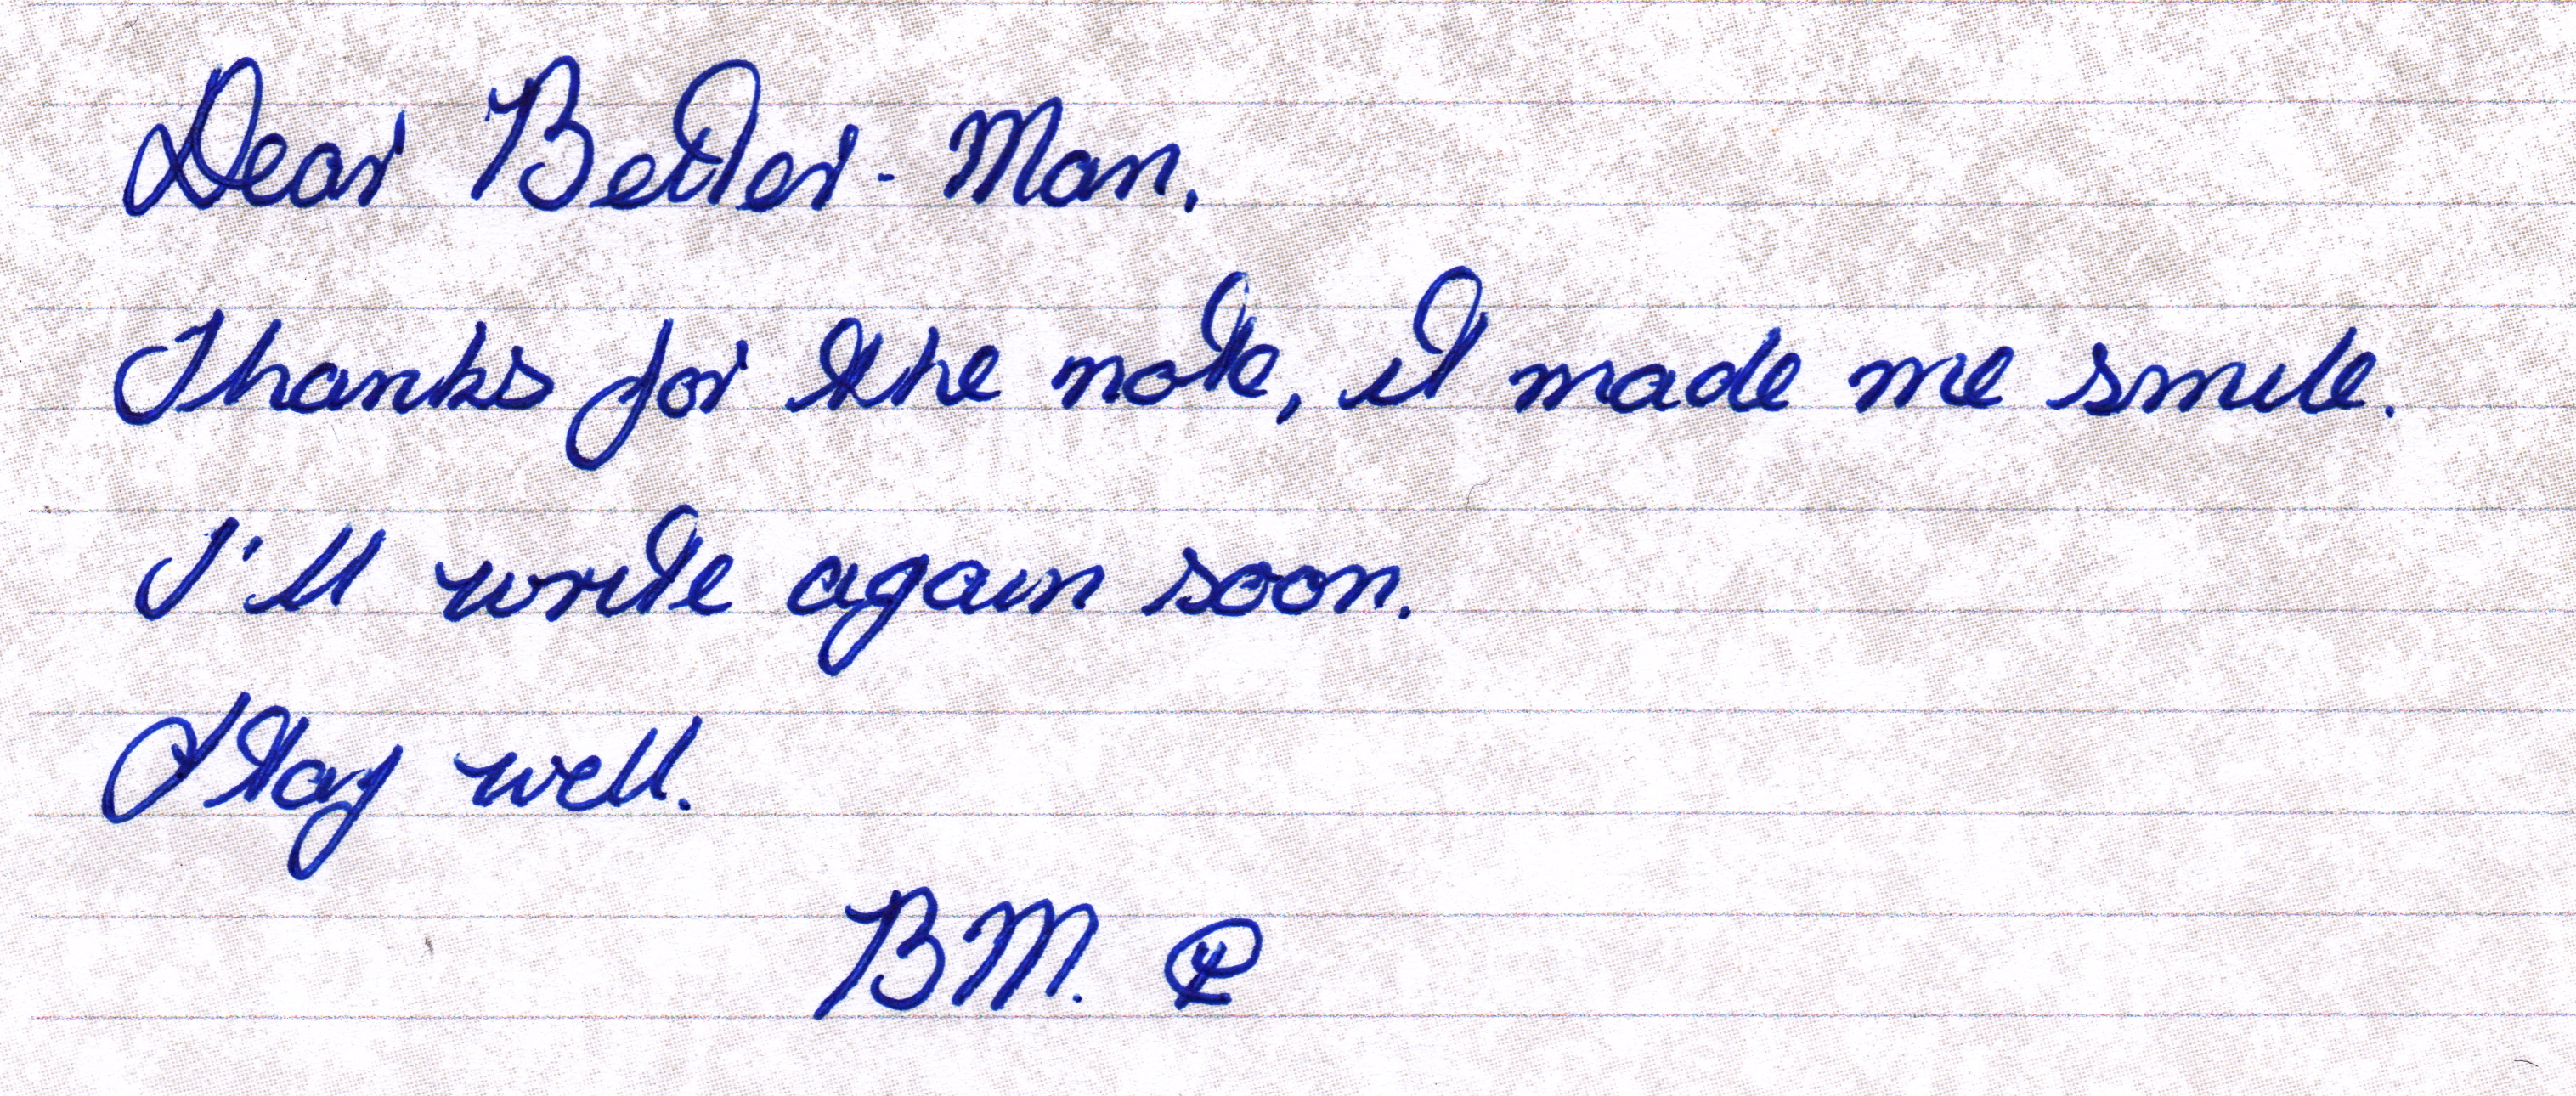 Dear Better-Man.
Thanks for the note, it made me smile.
I'll write again soon.
Stay well.
BM.